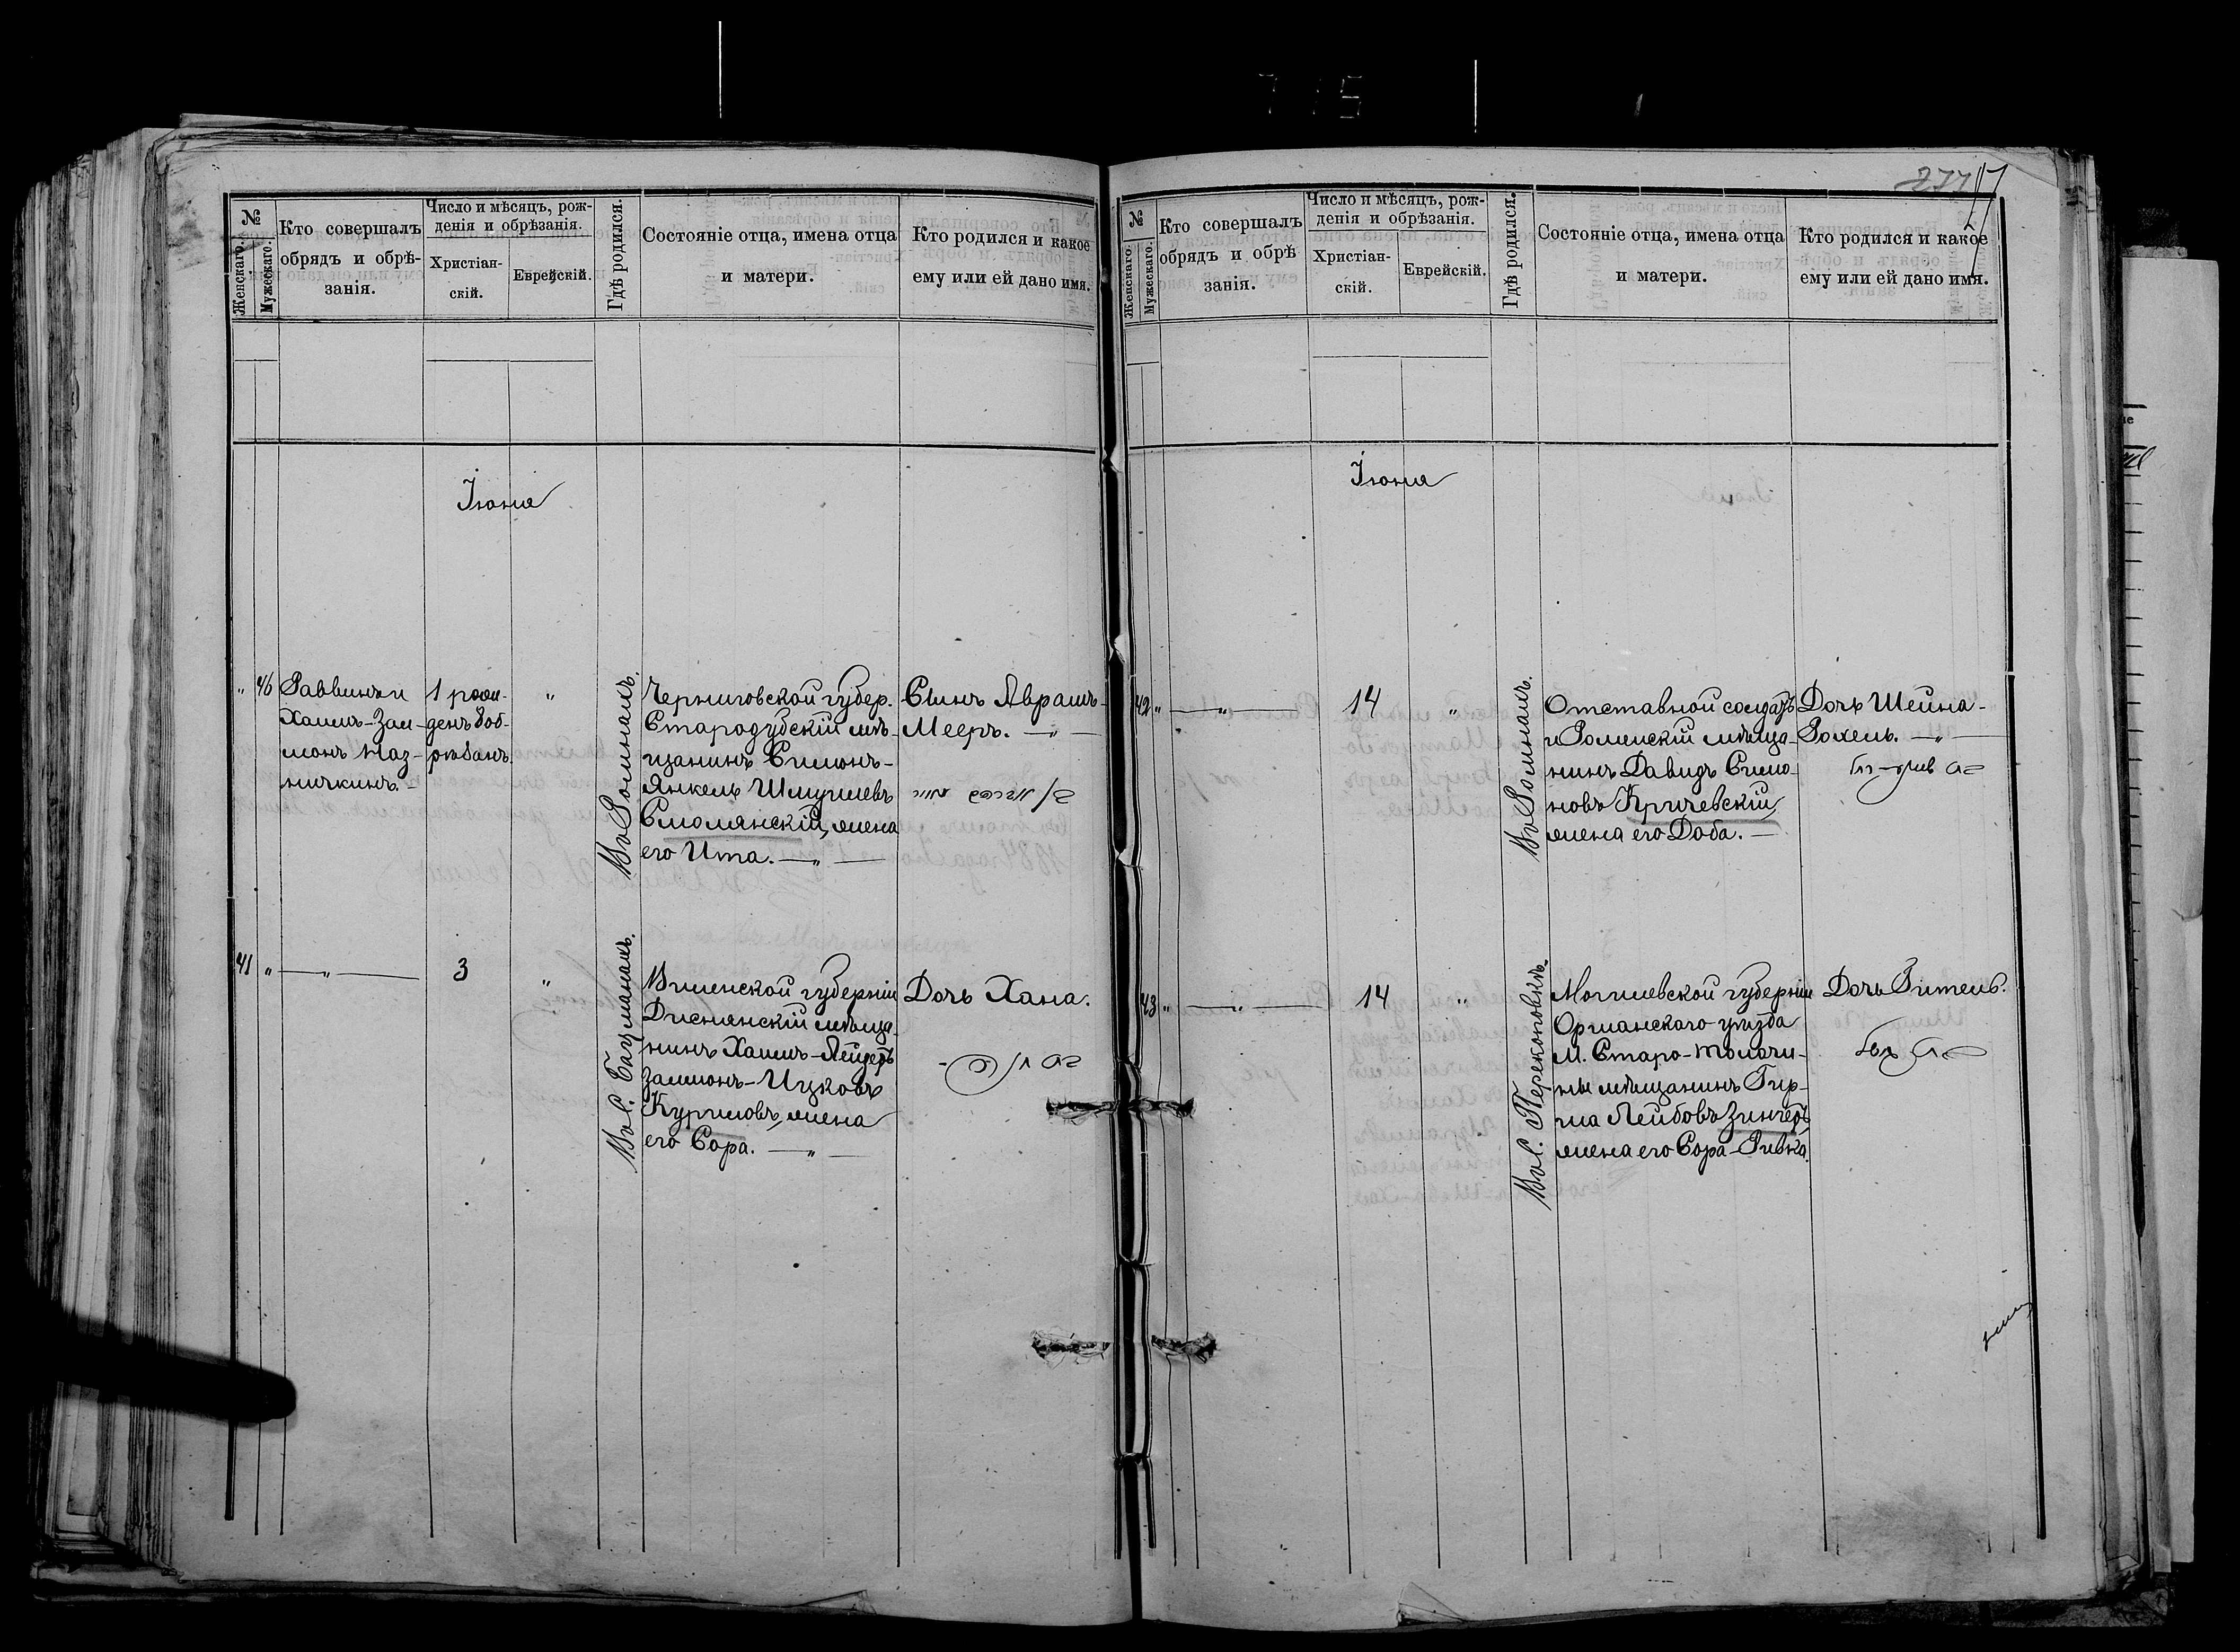 715
277
17
№
Женскаго.
Мужескаго.
Кто совершалъ
обрядъ и обрѣ-
занія.
Число и мѣсяцъ, рож-
денія и обрѣзанія.
Христіан-
скій.
Еврейскій.
Гдѣ родился.
Состояніе отца, имена отца
и матери.
Кто родился и какое
ему или ей дано имя.
Іюня
" 46
Раввинъ и
Хаимъ-Зал-
монъ Маз-
ничкинъ.
1 рож-
денъ 8 об-
рѣзанъ.
"
Въ Ромнахъ.
Черниговской губер.
Стародубскій мѣ-
щанинъ Симонъ-
Янкель Шмуилевъ
Смолянскій, жена
его Ита. — " —
Сынъ Аврамъ-
Мееръ. — " —
41 " — " —
3
"
Въ с. Бацманахъ.
Виленской губерніи
Дисненскій мѣща-
нинъ Хаимъ-Лейзеръ
Залмонъ-Ицковъ
Куриловъ, жена
его Сора. — " —
Дочь Хана.
№
Женскаго.
Мужескаго.
Кто совершалъ
обрядъ и обрѣ
занія.
Число и мѣсяцъ, рож-
денія и обрѣзанія.
Христіан-
скій.
Еврейскій.
Гдѣ родился.
Состояніе отца, имена отца
и матери.
Кто родился и какое
ему или ей дано имя.
Іюня
42 " — " —
14
"
Въ Ромнахъ.
Отставной солдатъ
и Роменскій мѣща-
нинъ Давидъ Симо-
новъ Кричевскій,
жена его Доба. —
Дочь Шейна-
Рохель. — " —
43 " — " —
14
"
Въ с. Перекоповкѣ.
Могилевской губерніи
Оршанскаго уѣзда
М. Старо-Толочи-
ны мѣщанинъ Гир-
ша Лейбовъ Зингеръ
жена его Сора-Ривка.
Дочь Гитель.